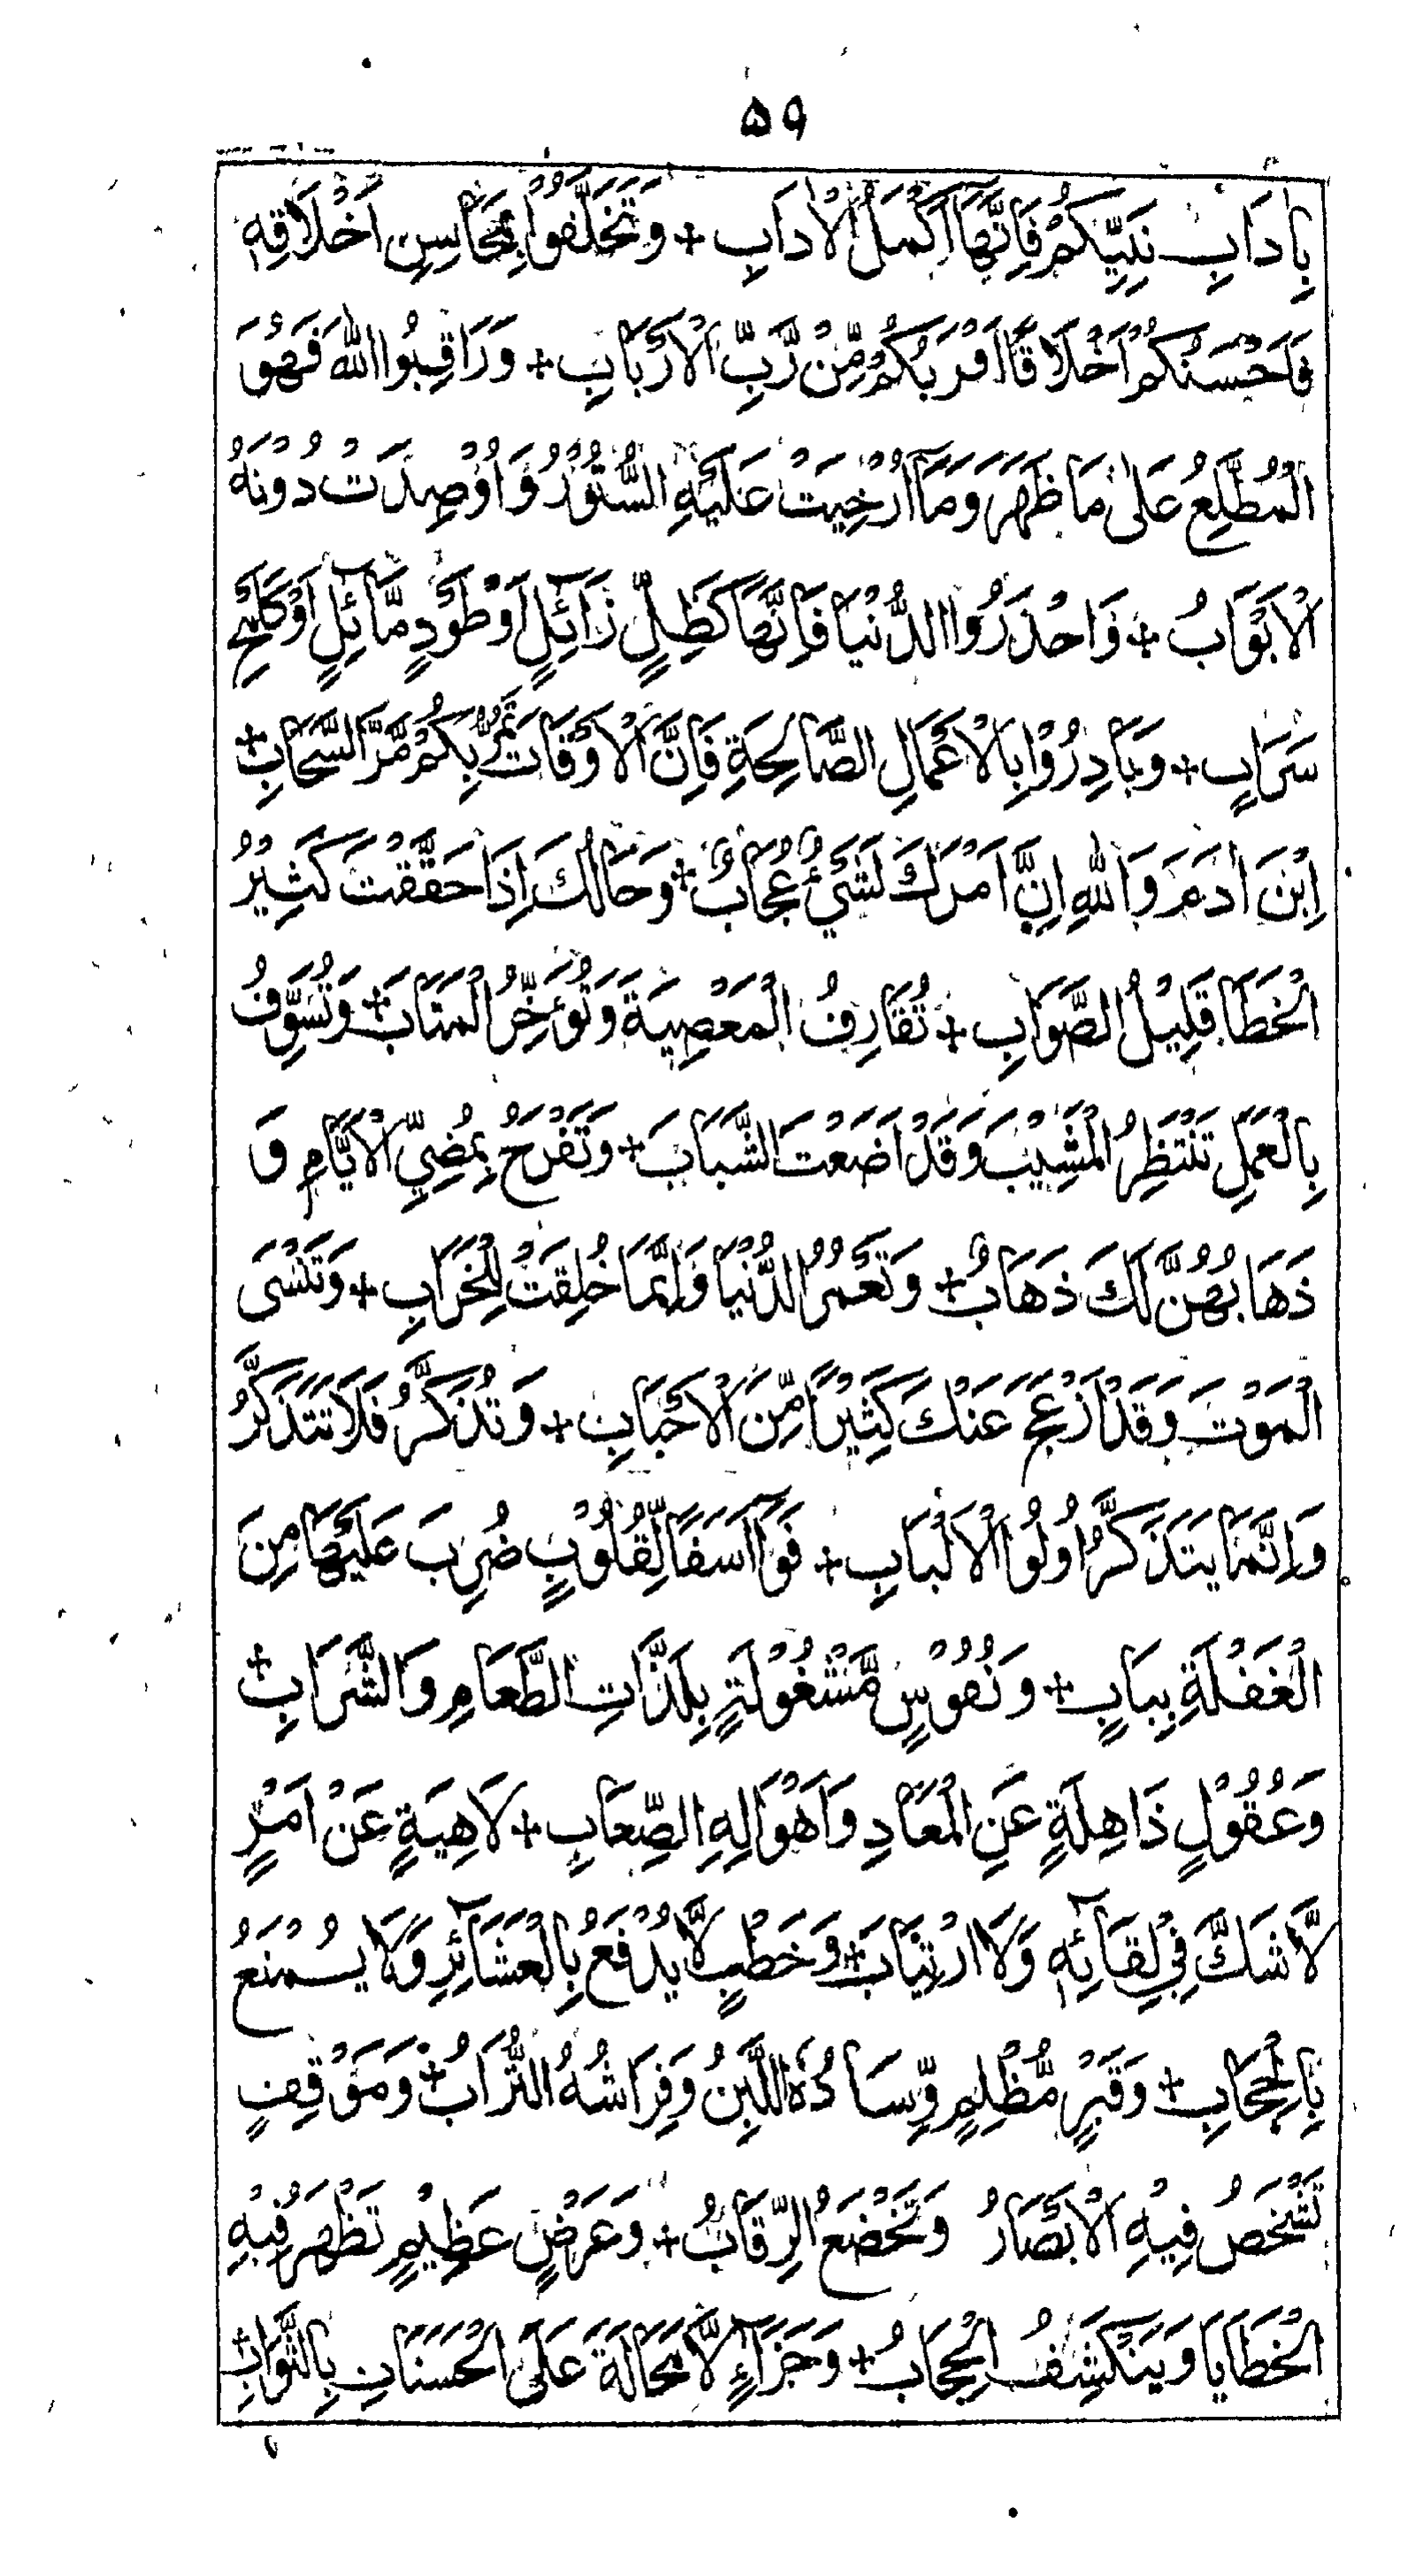 ۵۹
بِاٰدَابِ نَبِيِّكُمْ فَاِنَّهَا اَكْمَلُ الْاٰدَابِ + وَتَخَلَّقُوْا بِمَحَاسِنِ اَخْلَاقِهٖ
فَاَحْسَنُكُمْ اَخْلَاقًا اَقْرَبُكُمْ مِّنْ رَّبِّ الْاَرْبَابِ + وَرَاقِبُوا اللّٰهَ فَهُوَ
الْمُطَّلِعُ عَلٰى مَا ظَهَرَ وَمَا اُرْخِيَتْ عَلَيْهِ السُّتُوْرُ وَاُوْصِدَتْ دُوْنَهُ
الْاَبْوَابُ + وَاحْذَرُوا الدُّنْيَا فَاِنَّهَا كَظِلٍّ زَآئِلٍ اَوْ طَوْدٍ مَّآئِلٍ اَوْ كَلَمْحِ
سَرَابٍ + وَبَادِرُوْا بِالْاَعْمَالِ الصَّالِحَةِ فَاِنَّ الْاَوْقَاتَ تَمُرُّ بِكُمْ مَّرَّ السَّحَابِ +
اِبْنَ اٰدَمَ وَاللّٰهِ اِنَّ اَمْرَكَ لَشَيْءٌ عُجَابٌ + وَحَالُكَ اِذَا حَقَّقْتَ كَثِيْرُ
الْخَطَا قَلِيْلُ الصَّوَابِ + تُقَارِفُ الْمَعْصِيَةَ وَتُؤَخِّرُ الْمَتَابَ + وَتُسَوِّفُ
بِالْعَمَلِ تَنْتَظِرُ الْمَشِيْبَ وَقَدْ اَضَعْتَ الشَّبَابَ + وَتَفْرَحُ بِمُضِيِّ الْاَيَّامِ وَ
ذَهَابُهُنَّ لَكَ ذَهَابٌ + وَتَعْمُرُ الدُّنْيَا وَاِنَّمَا خُلِقَتْ لِلْخَرَابِ + وَتَنْسَى
الْمَوْتَ وَقَدْ اَزْعَجَ عَنْكَ كَثِيْرًا مِّنَ الْاَحْبَابِ + وَتُذَكَّرُ فَلَا تَتَذَكَّرُ
وَاِنَّمَا يَتَذَكَّرُ اُولُوا الْاَلْبَابِ + فَوَآ اَسَفًا لِّقُلُوْبٍ ضُرِبَ عَلَيْهَا مِنَ
الْغَفْلَةِ بِبَابٍ + وَنُفُوْسٍ مَّشْغُوْلَةٍ بِلَذَّاتِ الطَّعَامِ وَالشَّرَابِ +
وَعُقُوْلٍ ذَاهِلَةٍ عَنِ الْمَعَادِ وَاَهْوَالِهِ الصِّعَابِ + لَاهِيَةٍ عَنْ اَمْرٍ
لَّا شَكَّ فِيْ لِقَآئِهٖ وَلَا ارْتِيَابَ + وَخَطْبٍ لَّا يُدْفَعُ بِالْعَشَآئِرِ وَلَا يُمْنَعُ
بِالْحِجَابِ + وَقَبْرٍ مُّظْلِمٍ وِّسَادُهُ اللَّبِنُ وَفِرَاشُهُ التُّرَابُ + وَمَوْقِفٍ
تَشْخَصُ فِيْهِ الْاَبْصَارُ وَتَخْضَعُ الرِّقَابُ + وَعَرْضٍ عَظِيْمٍ تَظْهَرُ فِيْهِ
الْخَطَايَا وَيَنْكَشِفُ الْحِجَابُ + وَجَزَآءٍ لَّا مَحَالَةَ عَلَى الْحَسَنَاتِ بِالثَّوَابِ +